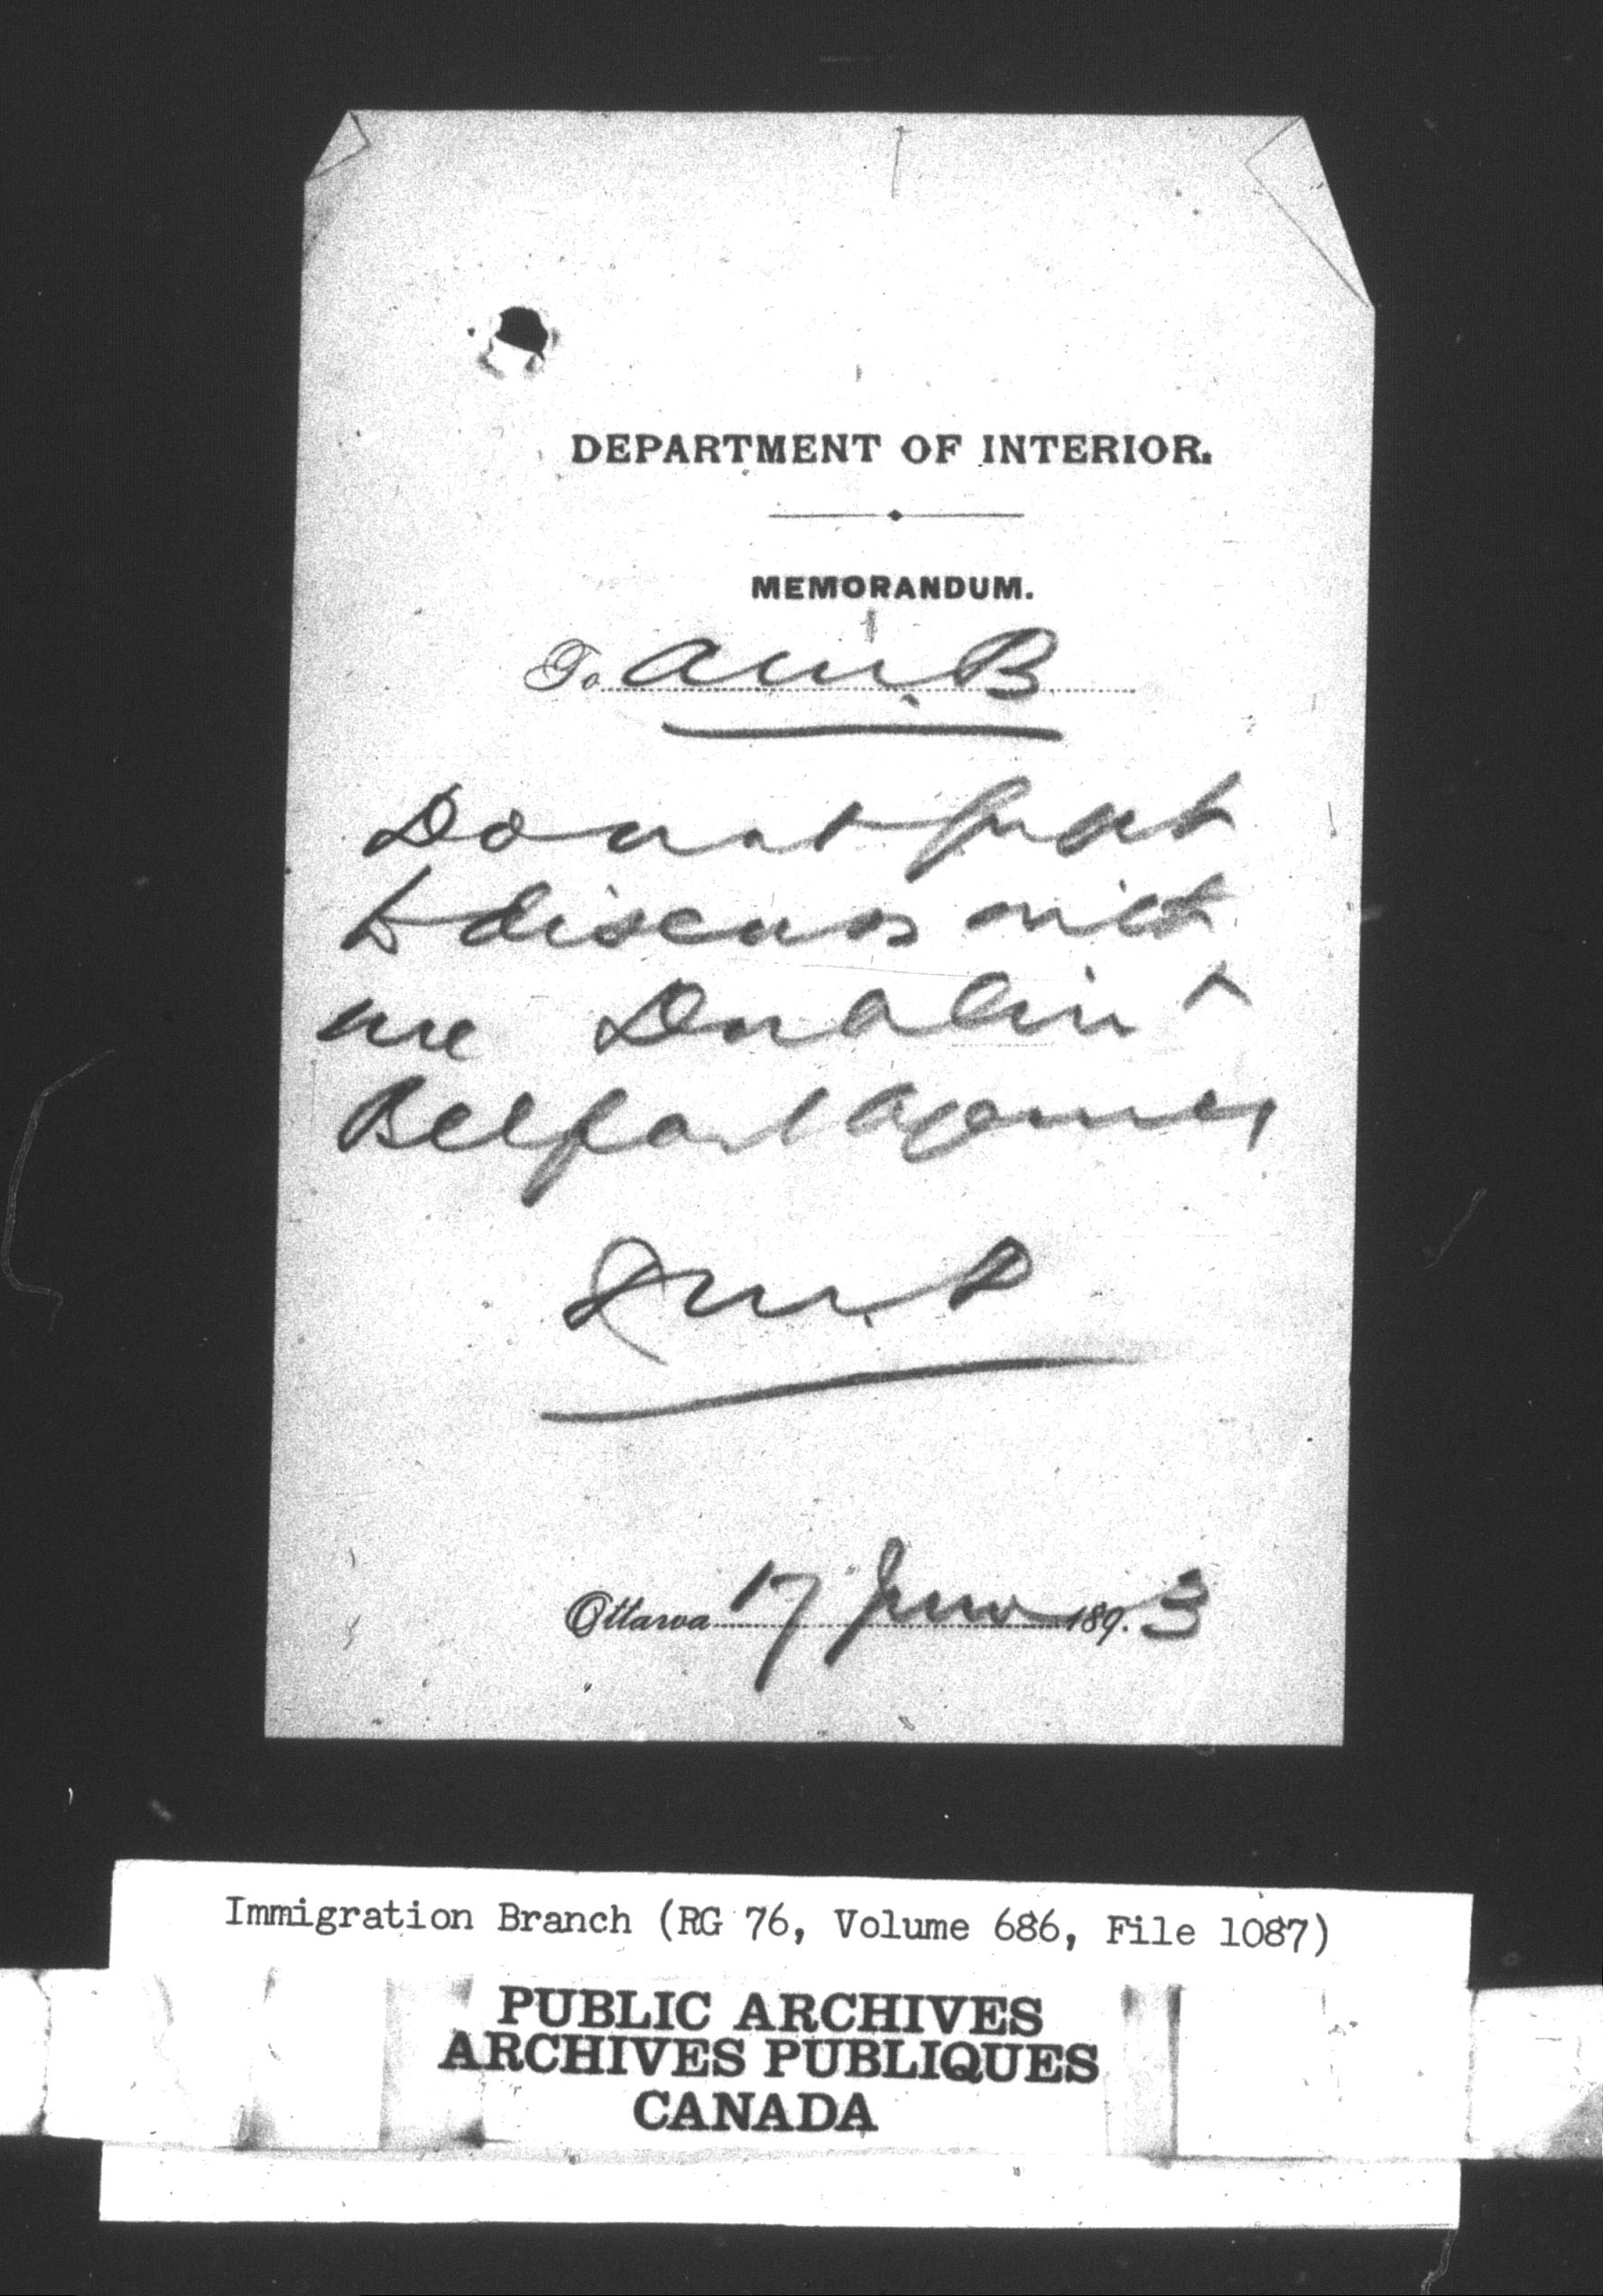 DEPARTMENT OF INTERIOR.
MEMORANDUM.
To A.M.B
Do not forget
to discuss with
me Dublin &
Belfast Agencies
Ottawa 17 June 1893
Immigration Branch (RG 76, Volume 686, File 1087)
PUBLIC ARCHIVES
ARCHIVES PUBLIQUES
CANADA